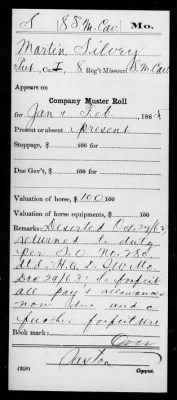 S | 8 S.M. Cav | Mo.
Martin Silvey
Pvt, Co. I, 8 Reg't Missouri S.M. Cav.
Appears on
Company Muster Roll
for Jan & Feb, 1865
Present or absent present
Stoppage, $ 100 for
Due Gov't, $ 100 for
Valuation of horse, $ 100 100
Valuation of horse equipments, $ 100
Remarks: Deserted Oct 27/62
returned to duty
per S.O. No. 280
Hd. H.Q. D. of Mo.
Dec 29/63 to forfeit
all pay & allowances
now due and a
further forfeiture
Book mark:
Over
Caxton
Copyist.